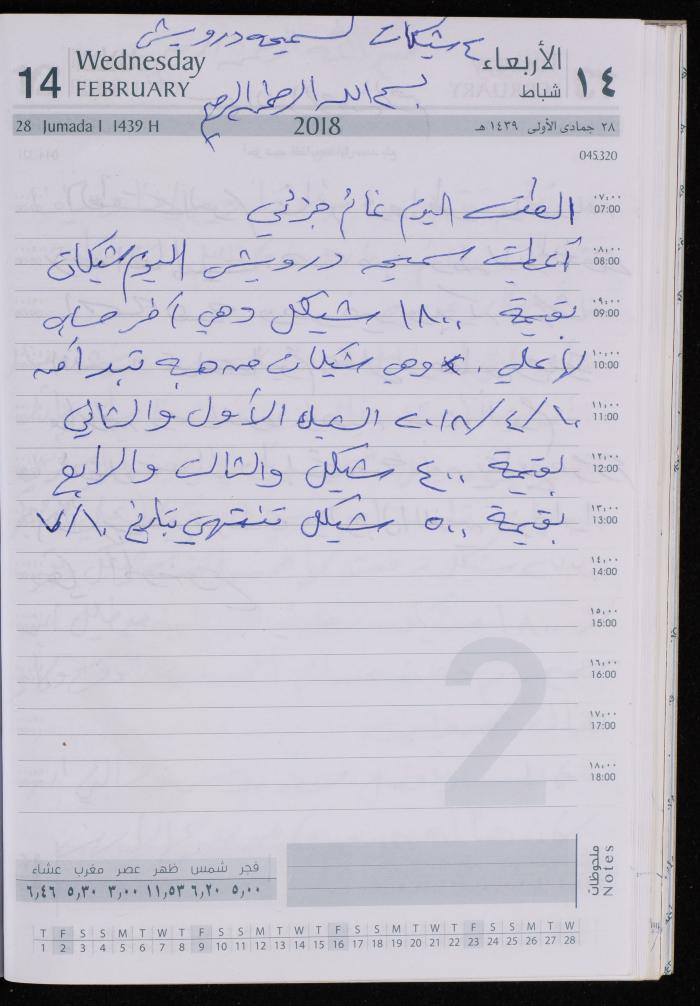 ٤ شيكات لسميحه درويش
14 Wednesday FEBRUARY
الأربعاء شباط ١٤
بسم الله الرحمن الرحيم
28 Jumada I 1439 H 2018 ٢٨ جمادى الأولى ١٤٣٩ هـ
045.320
٠٧:٠٠ 07:00 الطقس اليوم غائم جزئي
٠٨:٠٠ 08:00 أعطيت سميحه درويش اليوم شيكات
٠٩:٠٠ 09:00 بقيمة ١٨٠٠ شيكل وهي آخر حسابه
١٠:٠٠ 10:00 لأعلي . وهي شيكات تبدأ من
١١:٠٠ 11:00 ٢٠١٨/٤/١٠ الشيك الأول والثاني
١٢:٠٠ 12:00 بقيمة ٤٠٠ شيكل والثالث والرابع
١٣:٠٠ 13:00 بقيمة ٥٠٠ شيكل تنتهي بتاريخ ٧/١٠
١٤:٠٠ 14:00
١٥:٠٠ 15:00
١٦:٠٠ 16:00
١٧:٠٠ 17:00
١٨:٠٠ 18:00
2
ملحوظات Notes
فجر شمس ظهر عصر مغرب عشاء
٥,٠٠ ٦,٢٠ ١١,٥٣ ٣,٠٠ ٥,٣٠ ٦,٤٦
T F S S M T W T F S S M T W T F S S M T W T F S S M T W
1 2 3 4 5 6 7 8 9 10 11 12 13 14 15 16 17 18 19 20 21 22 23 24 25 26 27 28